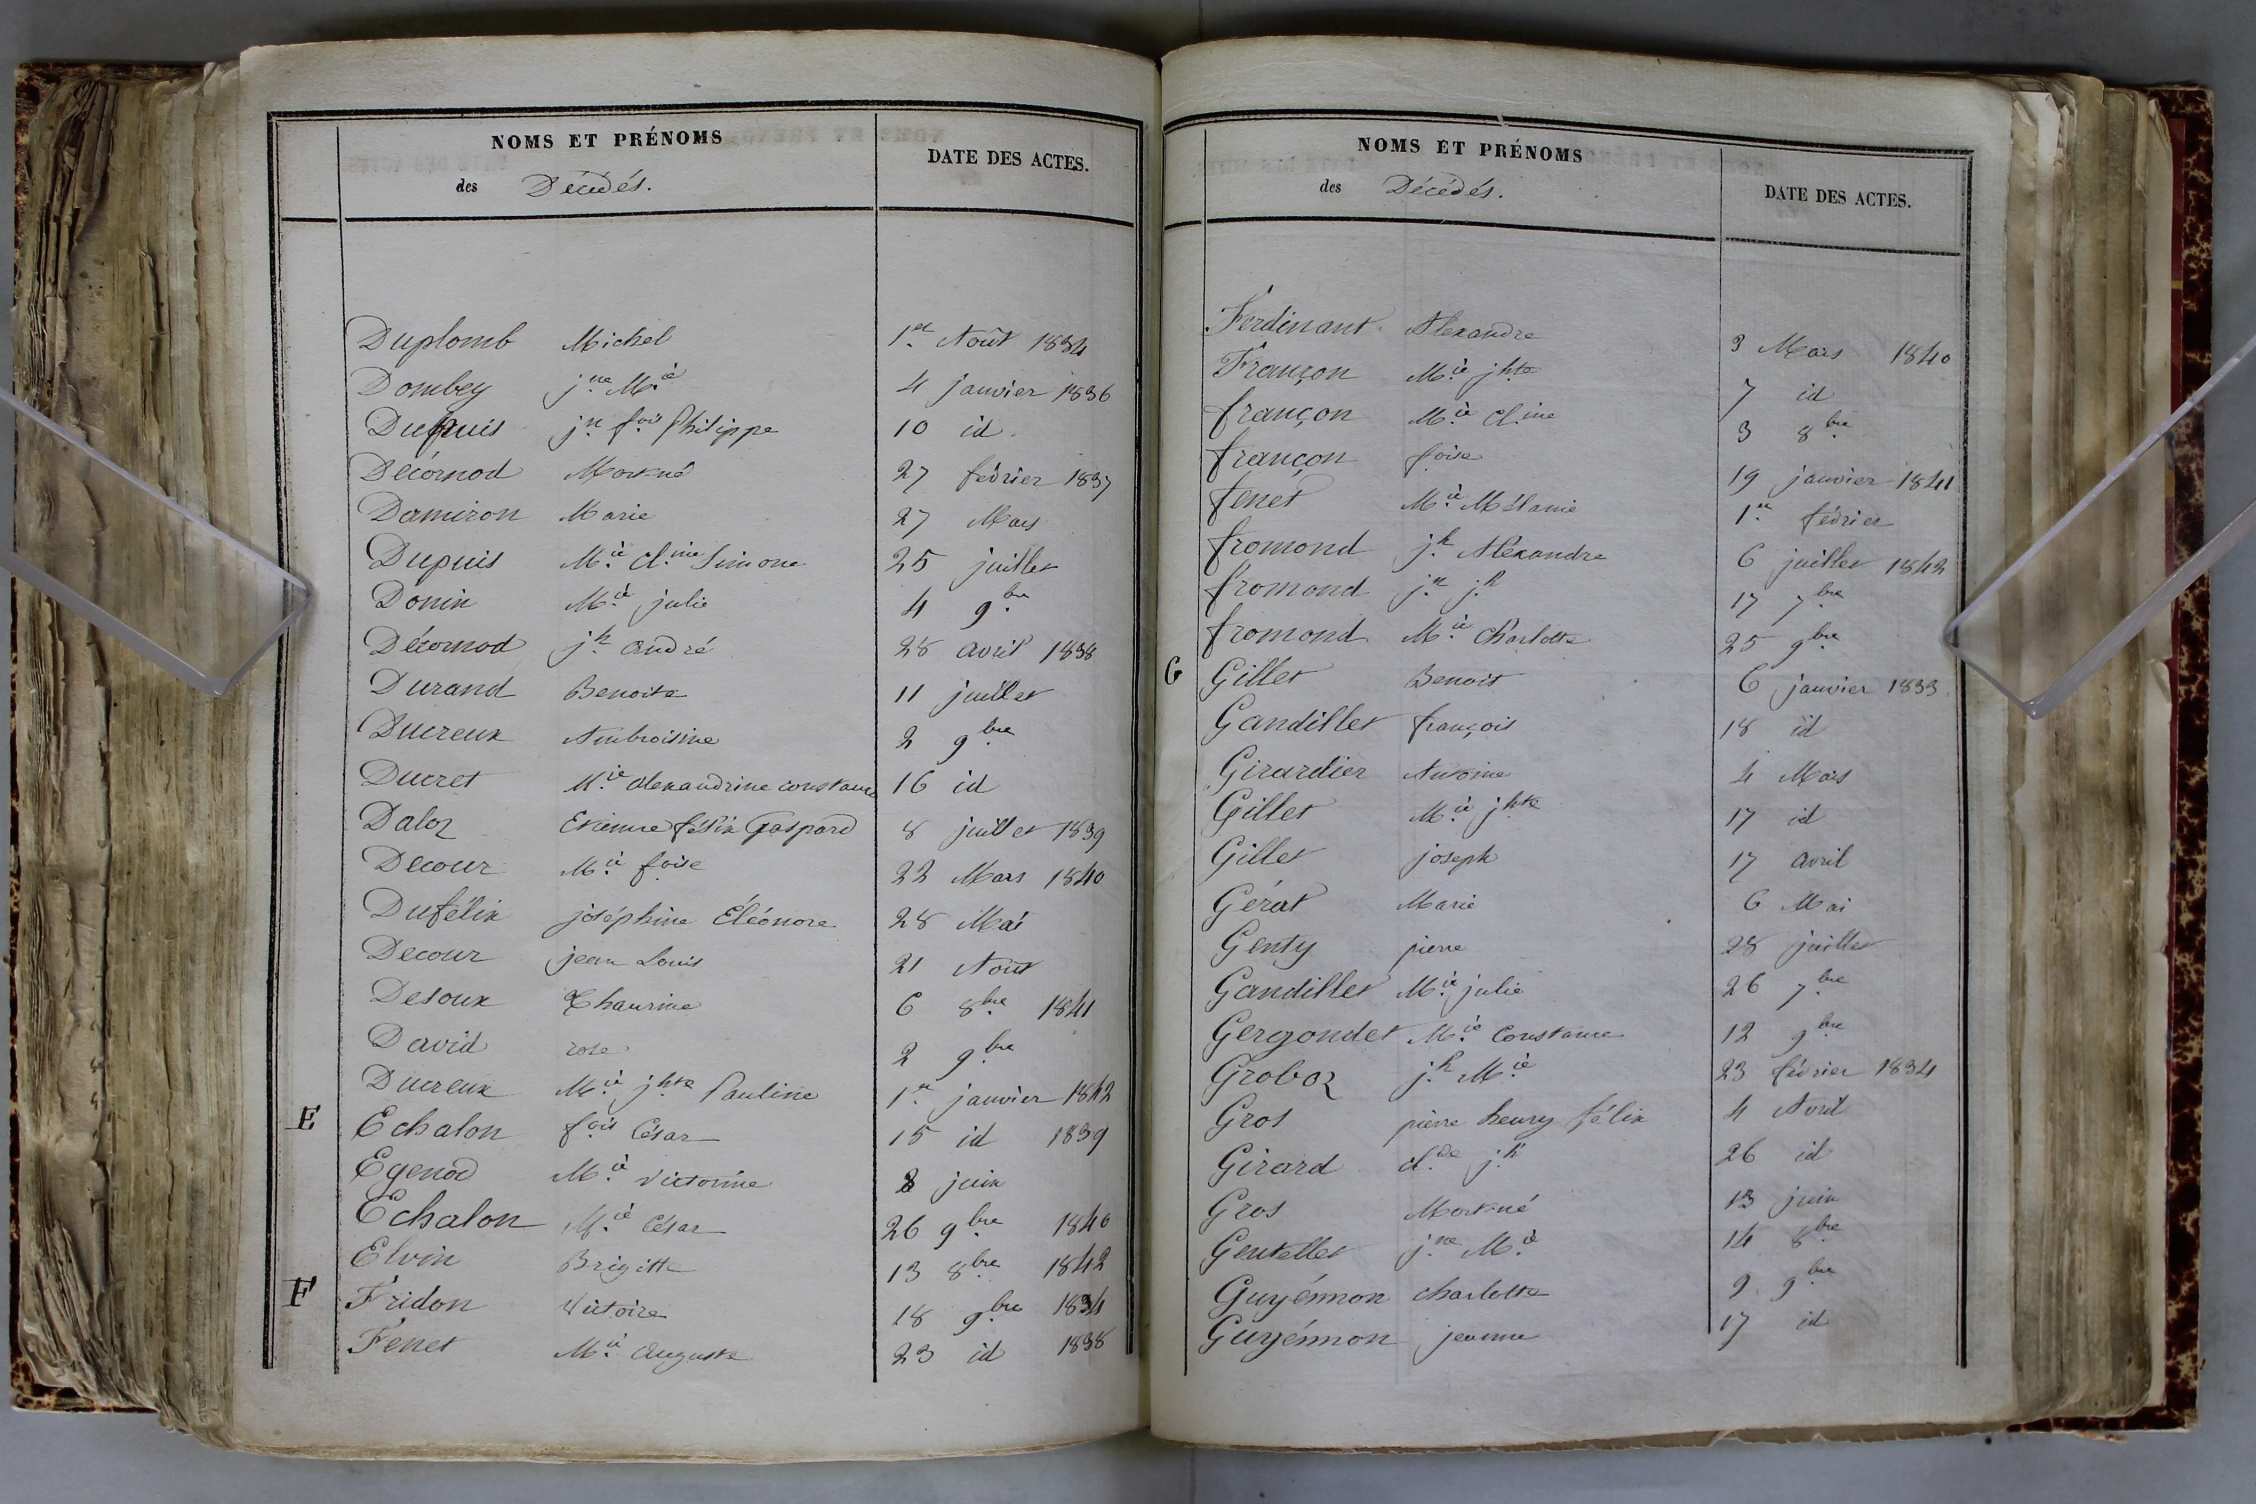 NOMS ET PRÉNOMS
DATE DES ACTES.
des Décédés.
Duplomb Michel 1er Août 1834
Dombey jne Mie 4 janvier 1836
Dupuis jn fois Philippe 10 id.
Décornod Mort né 27 février 1837
Damiron Marie 27 Mars
Dupuis Mie Cl.ine Simone 25 juillet
Donin Mie julie 4 9bre
Décornod jh André 28 avril 1838
Durand Benoite 11 juillet
Ducreux Ambroisine 2 9bre
Ducret Mie Alexandrine constance 16 id
Daloz Etienne félix Gaspard 8 juillet 1839
Decour Mie foise 22 Mars 1840
Dufélix joséphine Éléonore 28 Mai
Decour jean Louis 21 Août
Desoux 6 8bre 1841
David rose 2 9bre
Ducreux Mie jhte Pauline 1er janvier 1842
E Echalon fois César 15 id 1839
Egenod Mie Victorine 8 juin
Echalon Mie César 26 9bre 1840
Elvin Brigitte 13 8bre 1842
F Fridon Victoire 18 9bre 1834
Fenet Mie Auguste 23 id 1838
NOMS ET PRÉNOMS
DATE DES ACTES.
des Décédés.
Ferdinant Alexandre 3 Mars 1840
Françon Mie jhte 7 id
françon Mie Cl.ine 3 8bre
françon foise 19 janvier 1841
fenet Mie Mélanie 1er février
fromond jh Alexandre 6 juillet 1842
fromond jn jh 17 7bre
fromond Mie Charlotte 25 9bre
G Gillet Benoit 6 janvier 1833
Gandillet françois 18 id
Girardier Antoine 4 Mars
Gillet Mie jhte 17 id
Gillet joseph 17 avril
Gérat Marie 6 Mai
Genty pierre 28 juillet
Gandillet Mie julie 26 7bre
Gergondet Mie Constance 12 9bre
Groboz jh Mie 23 février 1834
Gros pierre henry félix 4 Avril
Girard cl.de jh 26 id
Gros Mort né 13 juin
Gentellet jne Mie 14 8bre
Guyénnon charlotte 9 9bre
Guyénnon jeanne 17 id